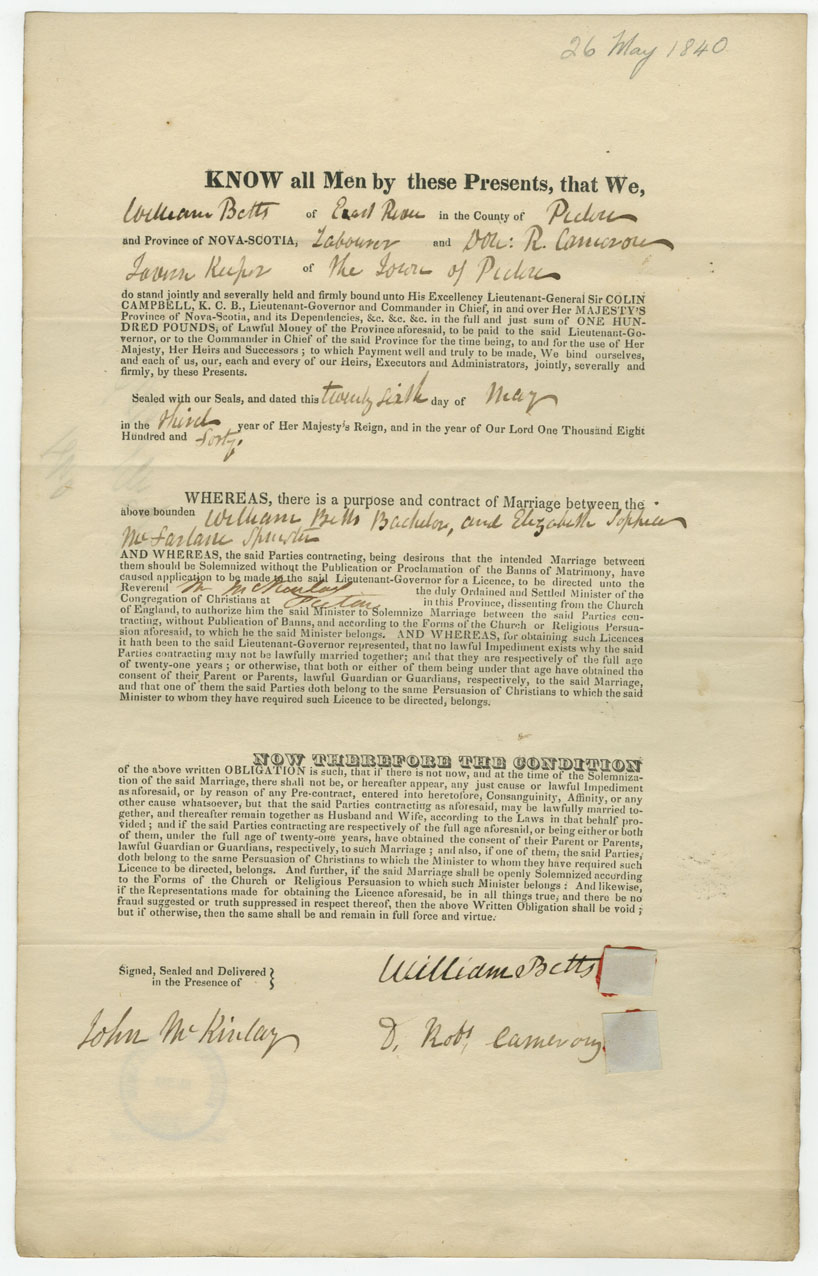 26 May 1840
KNOW all Men by these Presents, that We,
William Betts of East River in the County of Pictou
and Province of NOVA-SCOTIA, Labourer and Don: R. Cameron
Tavern Keeper of the Town of Pictou
do stand jointly and severally held and firmly bound unto His Excellency Lieutenant-General Sir COLIN
CAMPBELL, K. C. B., Lieutenant-Governor and Commander in Chief, in and over Her MAJESTY'S
Province of Nova-Scotia, and its Dependencies, &c. &c. &c. in the full and just sum of ONE HUN-
DRED POUNDS, of Lawful Money of the Province aforesaid, to be paid to the said Lieutenant-Go-
vernor, or to the Commander in Chief of the said Province for the time being, to and for the use of Her
Majesty, Her Heirs and Successors ; to which Payment well and truly to be made, We bind ourselves,
and each of us, our, each and every of our Heirs, Executors and Administrators, jointly, severally and
firmly, by these Presents.
Sealed with our Seals, and dated this twenty sixth day of May
in the third year of Her Majesty's Reign, and in the year of Our Lord One Thousand Eight
Hundred and forty.
WHEREAS, there is a purpose and contract of Marriage between the
above bounden William Betts Bachelor, and Elizabeth Sophia
McFarlane Spinster
AND WHEREAS, the said Parties contracting, being desirous that the intended Marriage between
them should be Solemnized without the Publication or Proclamation of the Banns of Matrimony, have
caused application to be made to the said Lieutenant-Governor for a Licence, to be directed unto the
Reverend Mr McKinlay the duly Ordained and Settled Minister of the
Congregation of Christians at Pictou in this Province, dissenting from the Church
of England, to authorize him the said Minister to Solemnize Marriage between the said Parties con-
tracting, without Publication of Banns, and according to the Forms of the Church or Religious Persua-
sion aforesaid, to which he the said Minister belongs. AND WHEREAS, for obtaining such Licences
it hath been to the said Lieutenant-Governor represented, that no lawful Impediment exists why the said
Parties contracting may not be lawfully married together; and that they are respectively of the full age
of twenty-one years ; or otherwise, that both or either of them being under that age have obtained the
consent of their Parent or Parents, lawful Guardian or Guardians, respectively, to the said Marriage,
and that one of them the said Parties doth belong to the same Persuasion of Christians to which the said
Minister to whom they have required such Licence to be directed, belongs.
NOW THEREFORE THE CONDITION
of the above written OBLIGATION is such, that if there is not now, and at the time of the Solemniza-
tion of the said Marriage, there shall not be, or hereafter appear, any just cause or lawful Impediment
as aforesaid, or by reason of any Pre-contract, entered into heretofore, Consanguinity, Affinity, or any
other cause whatsoever, but that the said Parties contracting as aforesaid, may be lawfully married to-
gether, and thereafter remain together as Husband and Wife, according to the Laws in that behalf pro-
vided ; and if the said Parties contracting are respectively of the full age aforesaid, or being either or both
of them, under the full age of twenty-one years, have obtained the consent of their Parent or Parents,
lawful Guardian or Guardians, respectively, to such Marriage ; and also, if one of them, the said Parties,
doth belong to the same Persuasion of Christians to which the Minister to whom they have required such
Licence to be directed, belongs. And further, if the said Marriage shall be openly Solemnized according
to the Forms of the Church or Religious Persuasion to which such Minister belongs : And likewise,
if the Representations made for obtaining the Licence aforesaid, be in all things true, and there be no
fraud suggested or truth suppressed in respect thereof, then the above Written Obligation shall be void ;
but if otherwise, then the same shall be and remain in full force and virtue.
Signed, Sealed and Delivered
in the Presence of
William Betts
John McKinlay
D. Robt Cameron